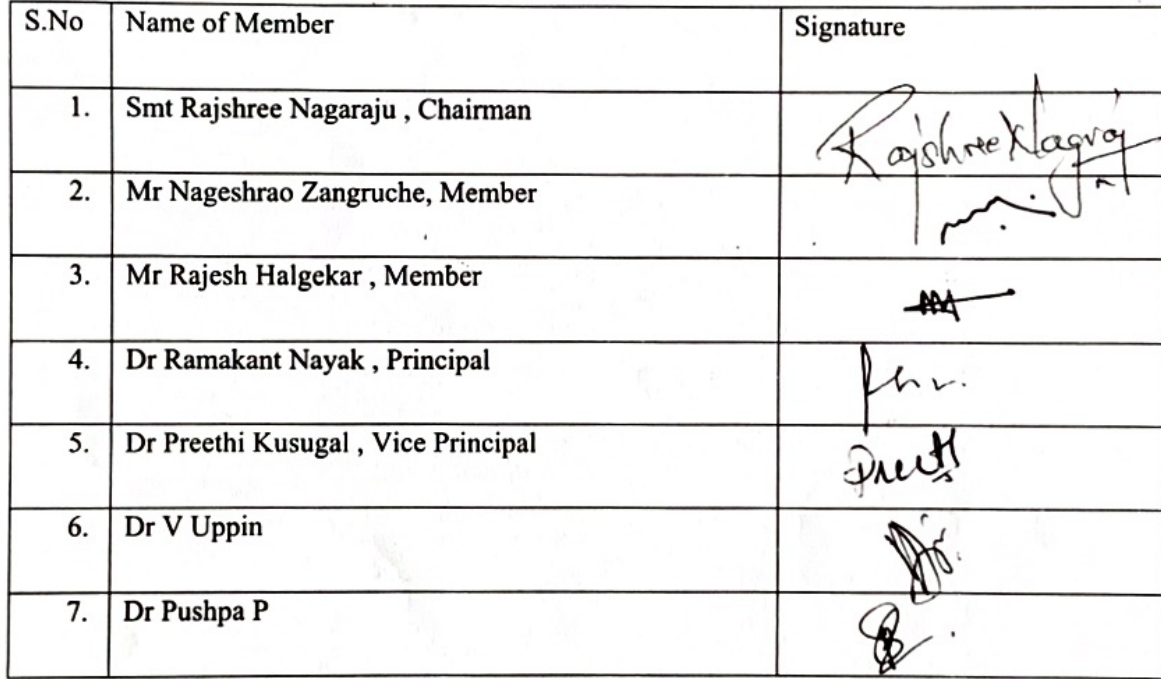 S.No Name of Member Signature
1. Smt Rajshree Nagaraju , Chairman Rajshree Nagraj
2. Mr Nageshrao Zangruche, Member
3. Mr Rajesh Halgekar , Member
4. Dr Ramakant Nayak , Principal
5. Dr Preethi Kusugal , Vice Principal Preeti
6. Dr V Uppin
7. Dr Pushpa P